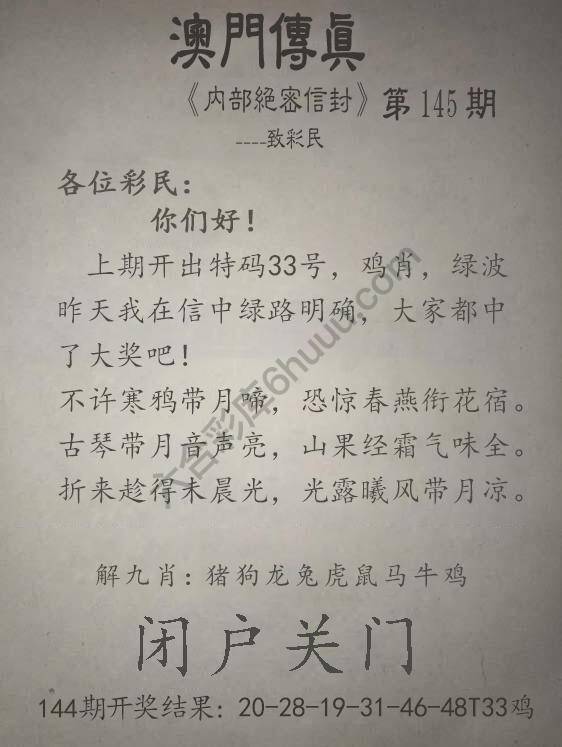 澳門傳真
《内部絕密信封》第145期
----致彩民
各位彩民：
你们好！
上期开出特码33号，鸡肖，绿波
昨天我在信中绿路明确，大家都中
了大奖吧！
不许寒鸦带月啼，恐惊春燕衔花宿。
古琴带月音声亮，山果经霜气味全。
折来趁得未晨光，光露曦风带月凉。
解九肖：猪狗龙兔虎鼠马牛鸡
闭户关门
144期开奖结果：20-28-19-31-46-48T33鸡
六合彩库6huuu.com